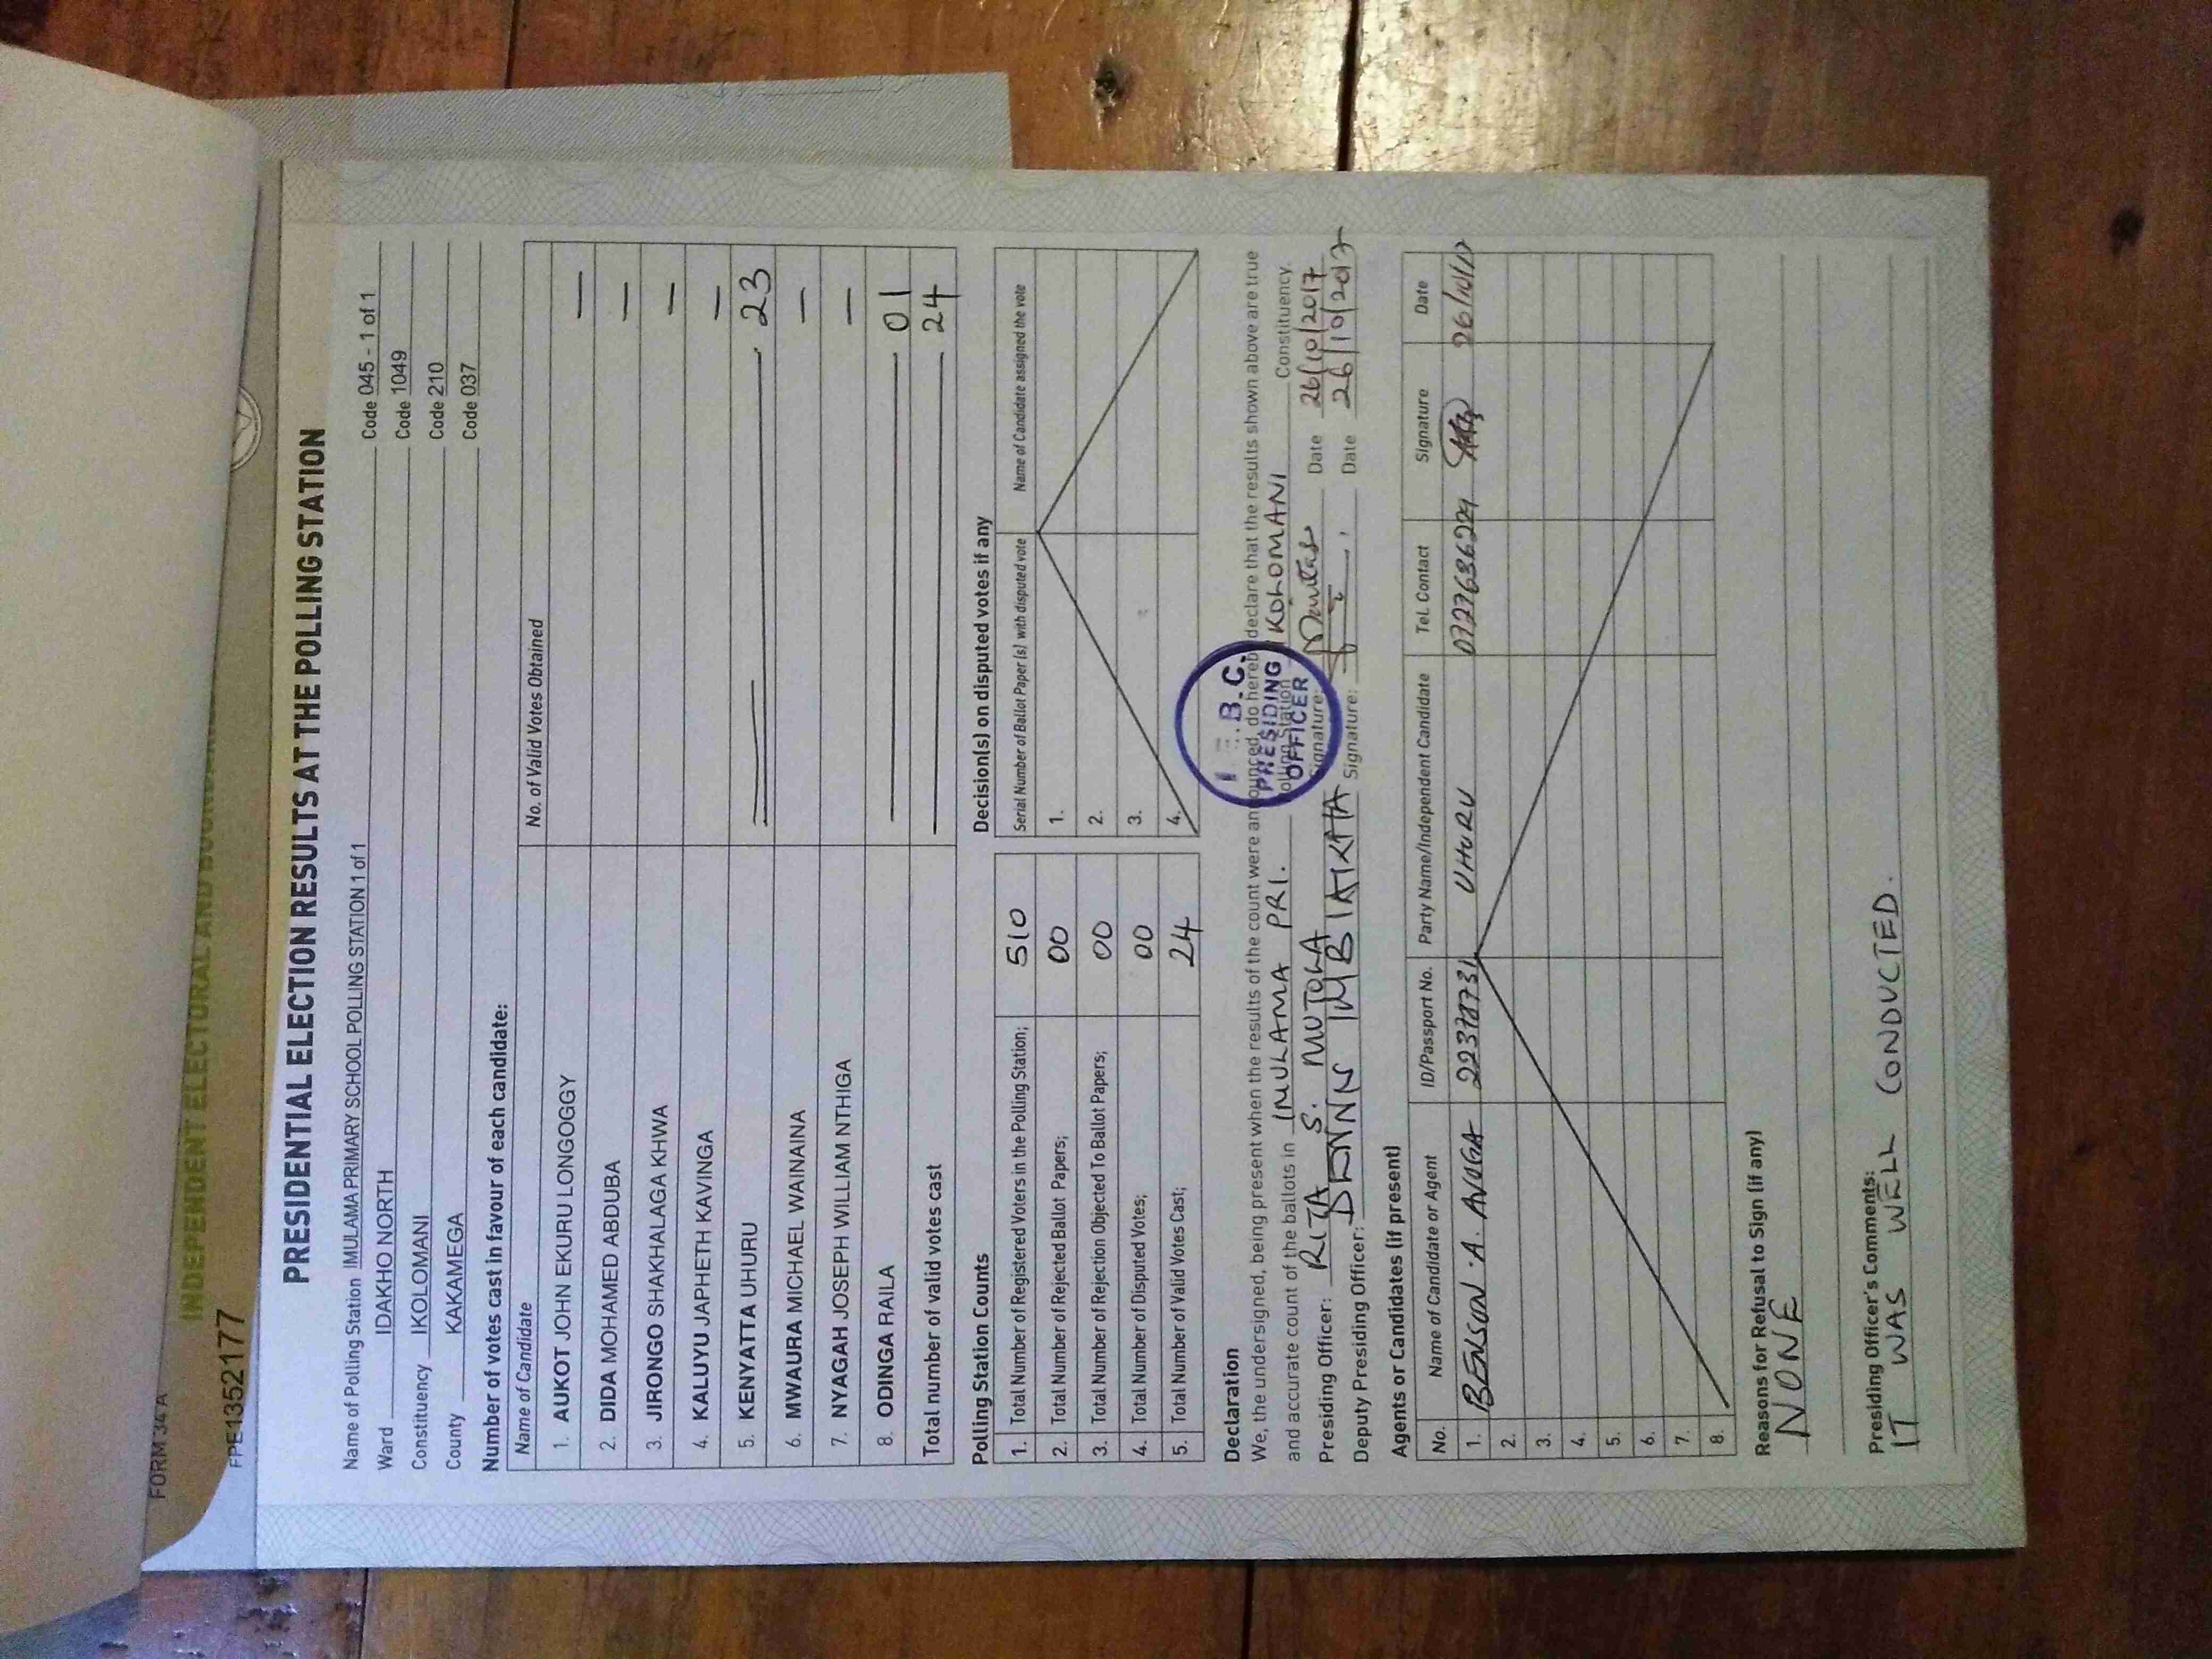 FORM 34 A
INDEPENDENT ELECTORAL AND
FPE1352177
PRESIDENTIAL ELECTION RESULTS AT THE POLLING STATION
Name of Polling Station IMULAMA PRIMARY SCHOOL POLLING STATION 1 of 1 Code 045 - 1 of 1
Ward IDAKHO NORTH Code 1049
Constituency IKOLOMANI Code 210
County KAKAMEGA Code 037
Number of votes cast in favour of each candidate:
Name of Candidate No. of Valid Votes Obtained
1. AUKOT JOHN EKURU LONGOGGY —
2. DIDA MOHAMED ABDUBA —
3. JIRONGO SHAKHALAGA KHWA —
4. KALUYU JAPHETH KAVINGA —
5. KENYATTA UHURU 23
6. MWAURA MICHAEL WAINAINA —
7. NYAGAH JOSEPH WILLIAM NTHIGA —
8. ODINGA RAILA 01
Total number of valid votes cast 24
Polling Station Counts
1. Total Number of Registered Voters in the Polling Station; 510
2. Total Number of Rejected Ballot Papers; 00
3. Total Number of Rejection Objected To Ballot Papers; 00
4. Total Number of Disputed Votes; 00
5. Total Number of Valid Votes Cast; 24
Decision(s) on disputed votes if any
Serial Number of Ballot Paper (s) with disputed vote Name of Candidate assigned the vote
1.
2.
3.
4.
Declaration
We, the undersigned, being present when the results of the count were announced, do hereby declare that the results shown above are true
and accurate count of the ballots in IMULAMA PRI. Polling Station IKOLOMANI Constituency.
Presiding Officer: RITA S. MUTOLA Signature: Date 26/10/2017
Deputy Presiding Officer: DENNIS IMBIAKHA Signature: Date 26/10/2017
B.C.
PRESIDING
OFFICER
Agents or Candidates (if present)
No. Name of Candidate or Agent ID/Passport No. Party Name/Independent Candidate Tel. Contact Signature Date
1. BENSON A. AVUGA 22378731 UHURU 0727636224 26/10/17
2.
3.
4.
5.
6.
7.
8.
Reasons for Refusal to Sign (if any)
NONE
Presiding Officer's Comments:
IT WAS WELL CONDUCTED.